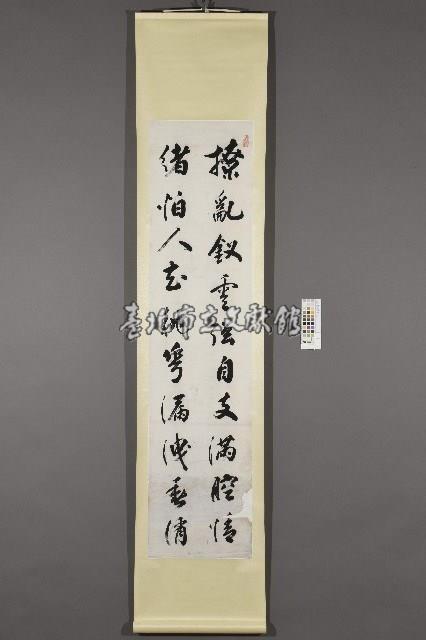 撩亂釵雲強自支滿腔情
緒怕人知 鶯漏洩春消
臺北市立文獻館